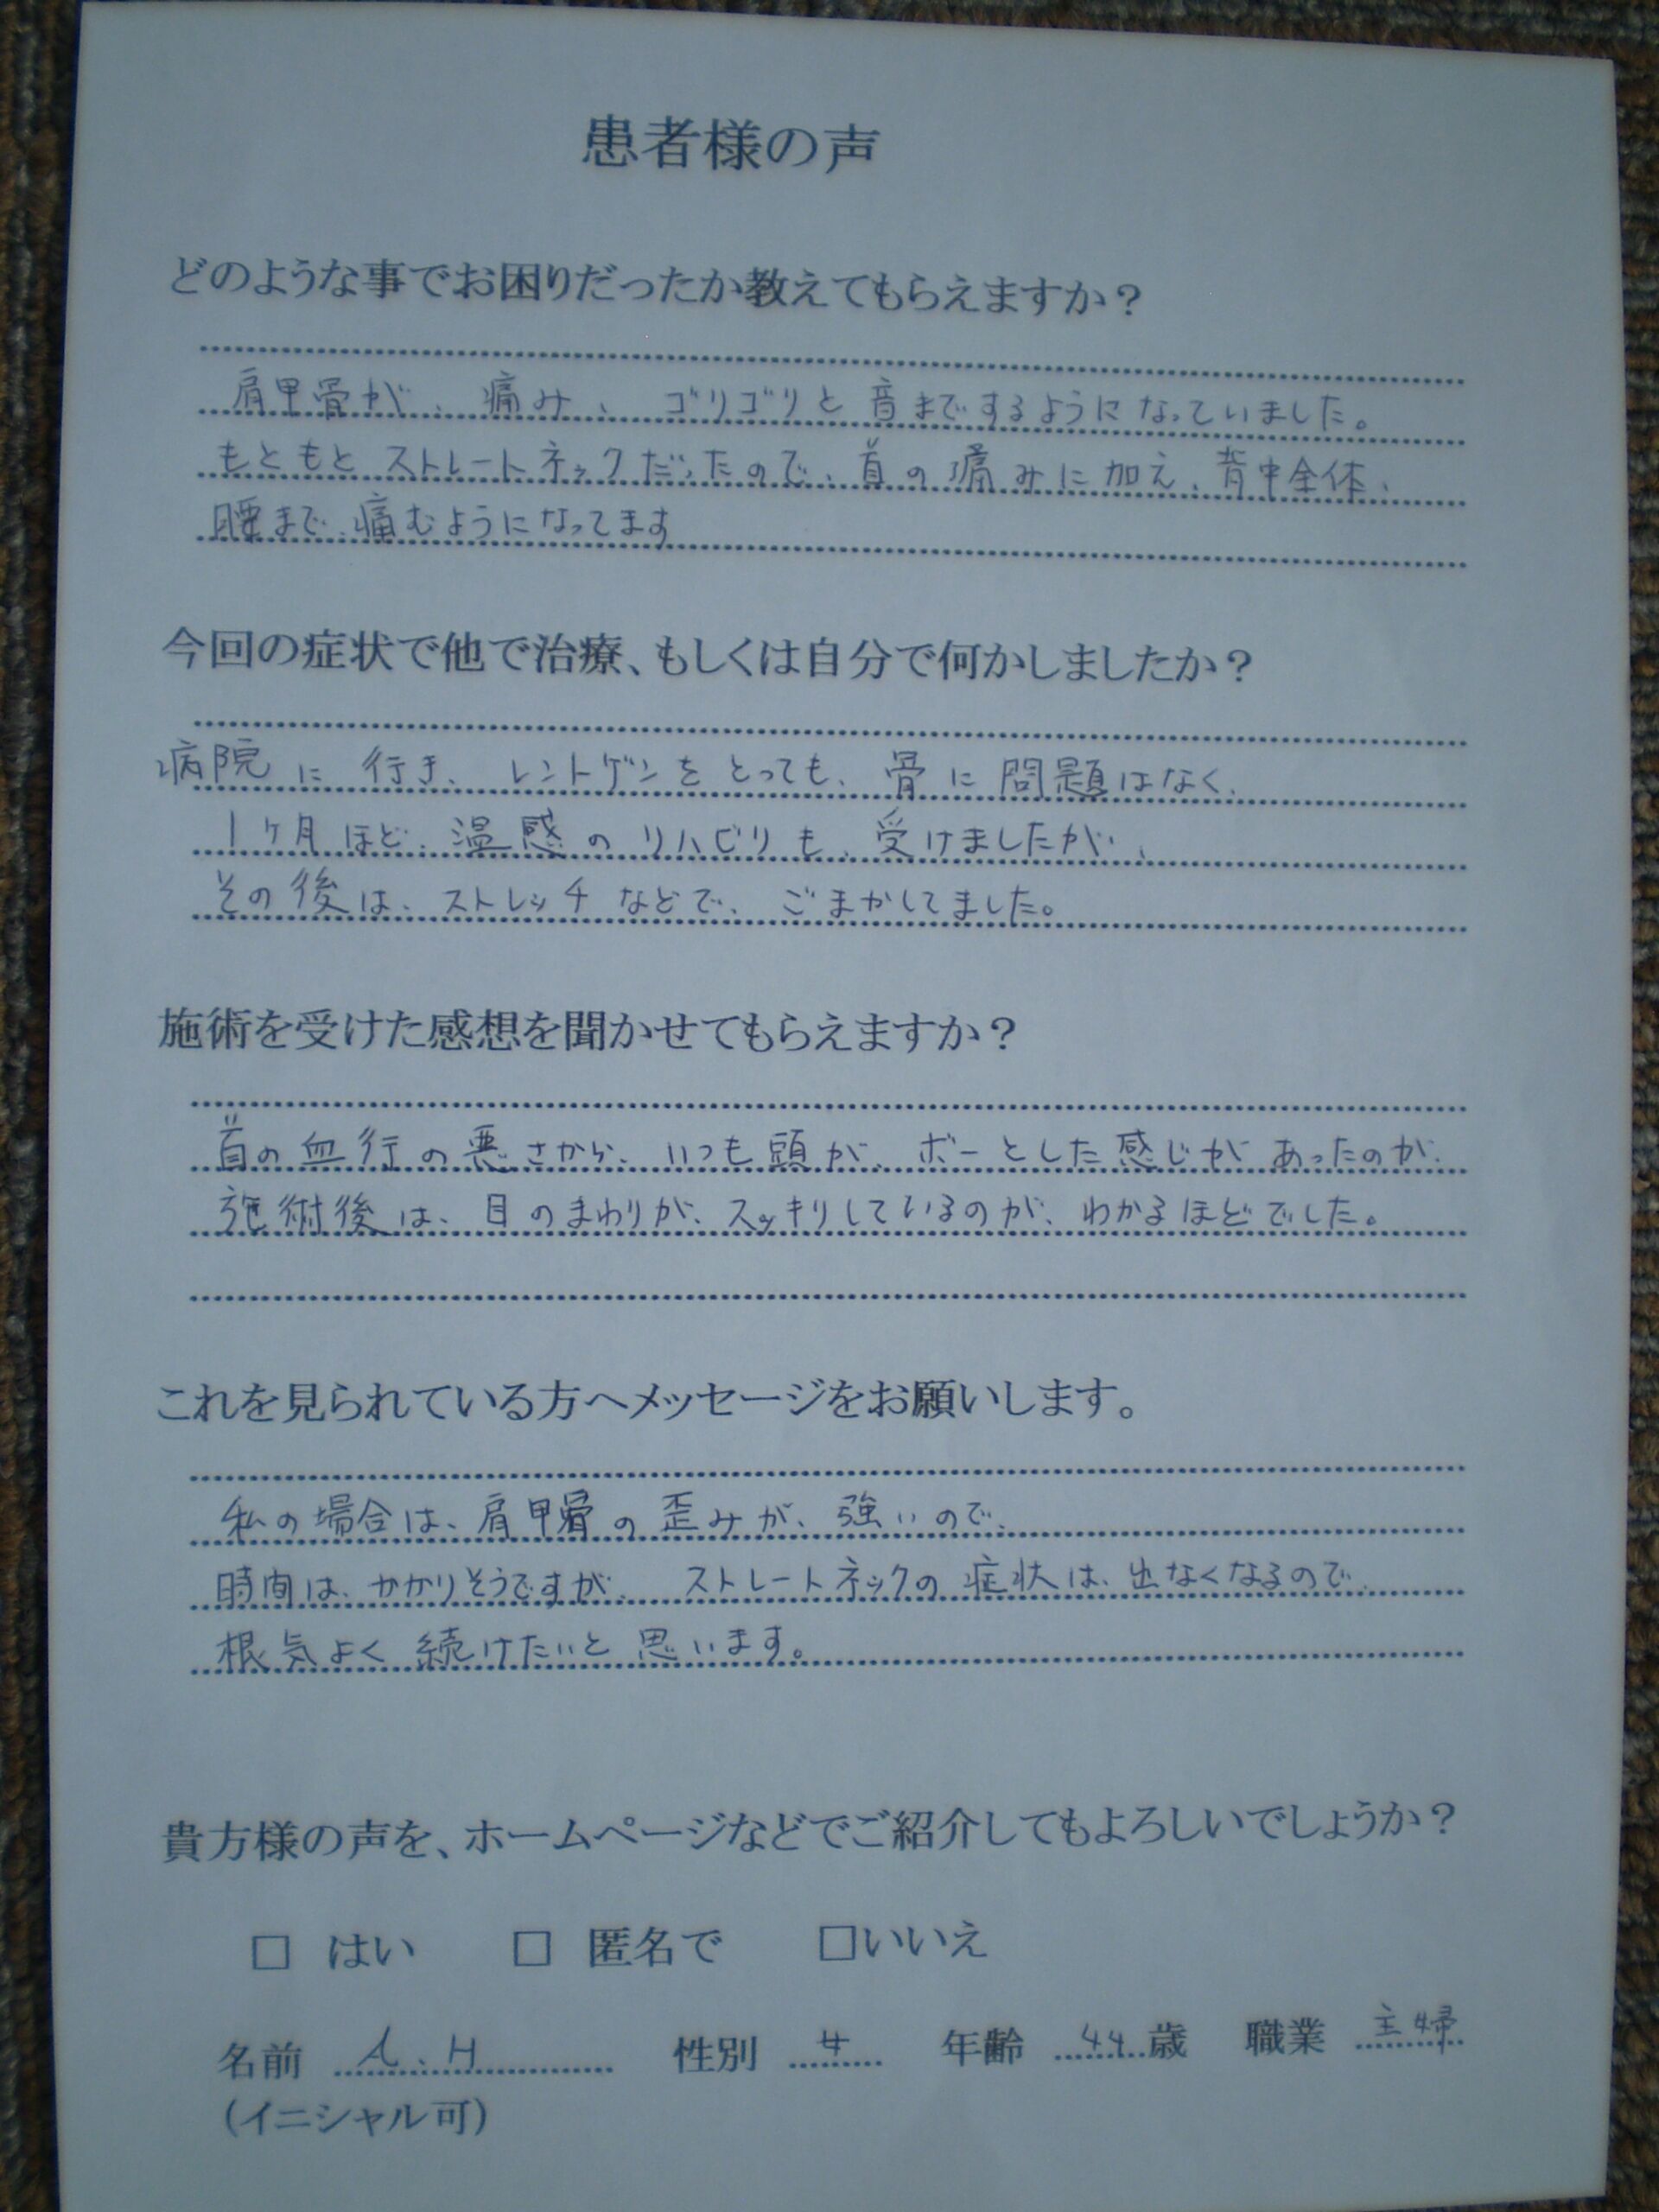 患者様の声
どのような事でお困りだったか教えてもらえますか？
肩甲骨が、痛み、ゴリゴリと音までするようになっていました。
もともとストレートネックだったので、首の痛みに加え、背中全体、
腰まで、痛むようになってます
今回の症状で他で治療、もしくは自分で何かしましたか？
病院に行き、レントゲンをとっても、骨に問題はなく、
1ヶ月ほど、温感のリハビリも、受けましたが、
その後は、ストレッチなどで、ごまかしてました。
施術を受けた感想を聞かせてもらえますか？
首の血行の悪さから、いつも頭が、ボーとした感じがあったのが、
施術後は、目のまわりが、スッキリしているのが、わかるほどでした。
これを見られている方へメッセージをお願いします。
私の場合は、肩甲骨の歪みが、強いので、
時間は、かかりそうですが、ストレートネックの症状は、出なくなるので、
根気よく続けたいと思います。
貴方様の声を、ホームページなどでご紹介してもよろしいでしょうか？
□ はい □ 匿名で □いいえ
名前 A.H 性別 女 年齢 44歳 職業 主婦
（イニシャル可）